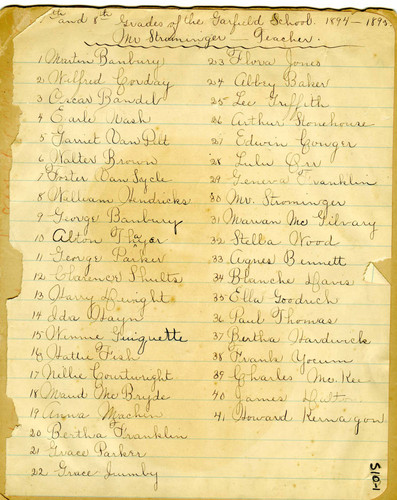 th and 8th Grades of the Garfield School. 1894-1895
Mr Strominger - Teacher.
1 Martin Banbury
2 Wilfred Corday
3 Oscar Bandel
4 Earle Nash
5 Garret Van Pelt
6 Walter Brown
7 Foster Van Sycle
8 William Hendricks
9 George Banbury
10 Alton Thayer
11 George Parker
12 Clarence Shults
13 Harry Dwight
14 Ida Hayn
15 Winnie Guiguette
16 Hattie Fish
17 Nellie Courtwright
18 Maud Mc Bryde
19 Anna Machin
20 Bertha Franklin
21 Grace Parker
22 Grace
23 Flora Jones
24 Abbey Baker
25 Lee Griffith
26 Arthur Stonehouse
27 Edwin Conger
28 Lulu Orr
29 Geneva Franklin
30 Mr. Strominger
31 Marian Mc Gilvary
32 Stella Wood
33 Agnes Bennett
34 Blanche Davis
35 Ella Goodrich
36 Paul Thomas
37 Bertha Hardwick
38 Frank Yocum
39 Charles Mc Kee
40 James
41 Howard Kernagon
510-1